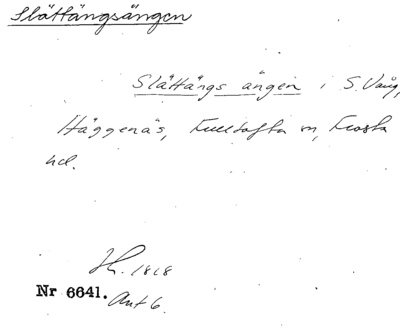 Slättängsängen
Slättängs ängen i S. Vång,
Häggenäs, Fulltofta sn, Frosta
hd.
Sk. 1818
Nr 6641. Akt 6.